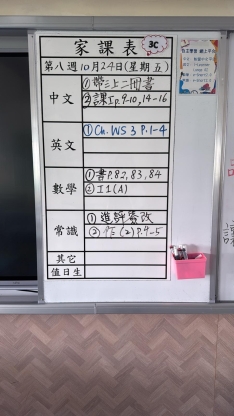 家課表 3C
第八週10月24日(星期五)
中文
①帶三上二冊書
②課I P.9-10,14-16
英文
①Ch. WS 3 P.1-4
數學
①書P.82,83,84
②I1(A)
常識
①進評簽改
②作(2)P.4-5
其它
值日生